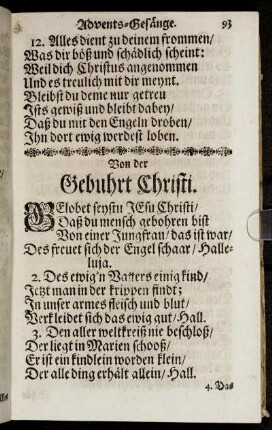 Advents-Gesänge. 93
12. Alles dient zu deinem frommen/
Was dir böß und schädlich scheint:
Weil dich Christus angenommen
Und es treulich mit dir meynt.
Bleibst du deme nur getreu
Ists gewiß und bleibt dabey/
Daß du mit den Engeln droben/
Ihn dort ewig werdest loben.
Von der
Gebuhrt Christi.
GElobet seystu JEsu Christ/
Daß du mensch gebohren bist
Von einer Jungfrau/ das ist war/
Des freuet sich der Engel schaar/ Halle-
luja.
2. Des ewig'n Vatters einig kind/
Jetzt man in der krippen findt;
In unser armes fleisch und blut/
Verkleidet sich das ewig gut/ Hall.
3. Den aller weltkreiß nie beschloß/
Der liegt in Marien schooß/
Er ist ein kindlein worden klein/
Der alle ding erhält allein/ Hall.
4. Das